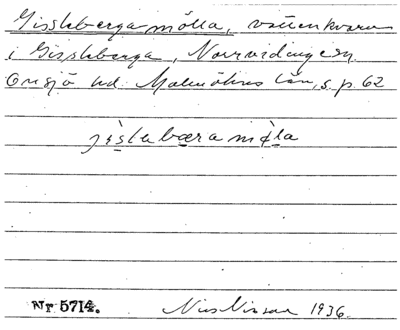 Gissleberga mölla, vattenkvarn
i Gissleberga, Norrvidinge sn.
Onsjö hd. Malmöhus län, s. p. 62
jìslabæra mø̀la
Nr 5714.
Nils Nilsson 1936.